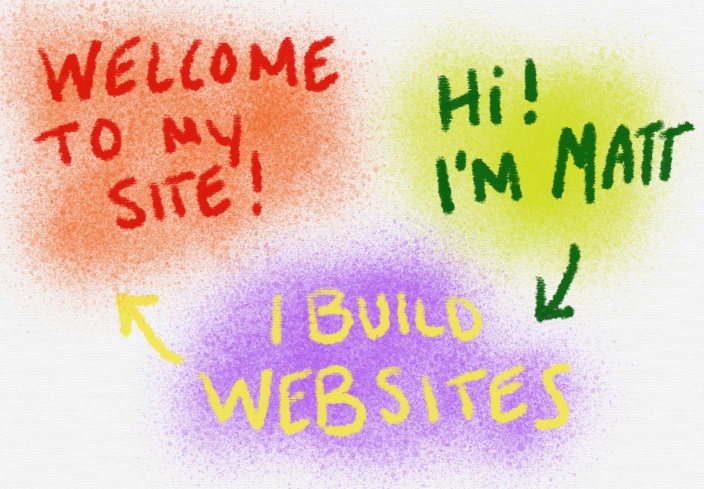 WELCOME
TO MY
SITE!
Hi!
I'M MATT
I BUILD
WEBSITES